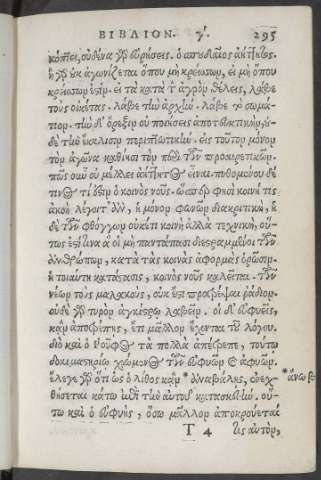 ΒΙΒΛΙΟΝ. γ´. 295
κόπει, οὐδένα γὰρ εὑρήσεις. ὁ σπουδαῖος ἀήττητος.
ἢ γὰρ οὐκ ἀγωνίζεται ὅπου μὴ κρείσσων, εἰ μὴ ὅπου
κρείσσων ἐστίν. εἰ τὰ κατὰ τ ἀγρὸν θέλεις, λάβε
τοὺς οἰκέτας. λάβε τὴν ἀρχὴν. λάβε τὸ σωμά-
τιον. τὴν δ' ὄρεξιν οὐ ποιήσεις ἀποτευκτικὴν, οὐ-
δὲ τὴν ἔκκλισιν περιπτωτικήν. εἰς τοῦτον μόνον
τὸν ἀγῶνα καθίησι τὸν περὶ τῶν προαιρετικῶν.
πῶς οὖν οὐ μέλλει ἀήττητος εἶναι. πυθομένου δέ
τινος τί ἐστιν ὁ κοινὸς νοῦς. ὥσπερ φησὶ κοινή τις
ἀκοὴ λέγοιτ' ἂν, ἡ μόνον φωνῶν διακριτικὴ, ἡ
δὲ τῶν φθόγγων οὐκέτι κοινὴ ἀλλὰ τεχνικὴ, οὕ-
τως ἐστί τινα ἃ οἱ μὴ παντάπασι διεστραμμένοι τῶν
ἀνθρώπων, κατὰ τὰς κοινὰς ἀφορμὰς ὁρῶσιν.
ἡ τοιαύτη κατάστασις, κοινὸς νοῦς καλεῖται. τῶν
νέων τοὺς μαλακοὺς, οὐκ ἔστι προτρέψαι ῥάδιον.
οὐδὲ γὰρ τυρὸν ἀγκίστρῳ λαβεῖν. οἱ δ' εὐφυεῖς,
κἂν ἀποτρέπῃς, ἔτι μᾶλλον ἔχονται τοῦ λόγου.
διὸ καὶ ὁ Ῥοῦφος τὰ πολλὰ ἀπέτρεπε, τούτῳ
δοκιμαστηρίῳ χρώμενος τῶν εὐφυῶν καὶ ἀφυῶν.
ἔλεγε γὰρ ὅτι ὡς ὁ λίθος κἂν * ἀναβάλῃς, ἐνεχ- * ἄνω β
θήσεται κάτω κατὰ τὴν αὐτοῦ κατασκευήν. οὕ-
τω καὶ ὁ εὐφυὴς, ὅσῳ μᾶλλον ἀποκρούεταί
T 4 τις αὐτὸν,